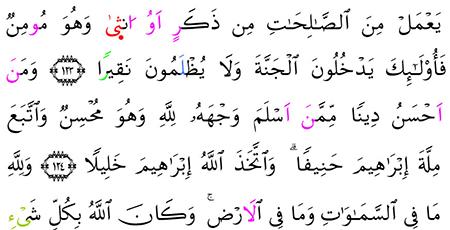 يَعْمَلْ مِنَ اَ۬لصَّٰلِحَٰتِ مِن ذَكَرٍ اَوُ ا۟نث۪ىٰ وَهُوَ مُومِنٞ
فَأُوْلَٰٓئِكَ يَدْخُلُونَ اَ۬لْجَنَّةَ وَلَا يُظْلَمُونَ نَقِيراٗ ۝١٢٣ وَمَنَ
اَحْسَنُ دِيناٗ مِّمَّنَ اَسْلَمَ وَجْهَهُۥ لِلهِ وَهُوَ مُحْسِنٞ وَاتَّبَعَ
مِلَّةَ إِبْرَٰهِيمَ حَنِيفاٗۖ وَاتَّخَذَ اَ۬للَّهُ إِبْرَٰهِيمَ خَلِيلاٗ ۝١٢٤ وَلِلهِ
مَا فِے اِ۬لسَّمَٰوَٰتِ وَمَا فِے اِ۬لَارْضِۖ وَكَانَ اَ۬للَّهُ بِكُلِّ شَےْءٖ